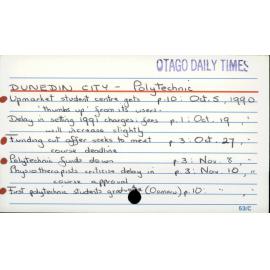 OTAGO DAILY TIMES
DUNEDIN CITY - Polytechnic
Upmarket student centre gets p.10: Oct. 5, 1990
'thumbs up' from its users.
Delay in setting 1991 charges: fees p.1: Oct. 19, "
will increase slightly
Funding cut offer seeks to meet p.3: Oct. 27, "
course deadline
Polytechnic funds down p.3: Nov. 8, "
Physiotherapists criticise delay in p.3: Nov. 10, "
course approval
First polytechnic students graduate (Oamaru) p.10: " "
53/C